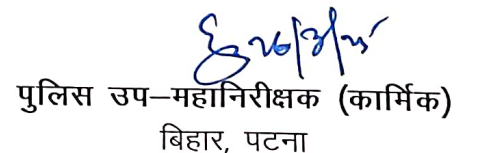 26/3/25
पुलिस उप–महानिरीक्षक (कार्मिक)
बिहार, पटना